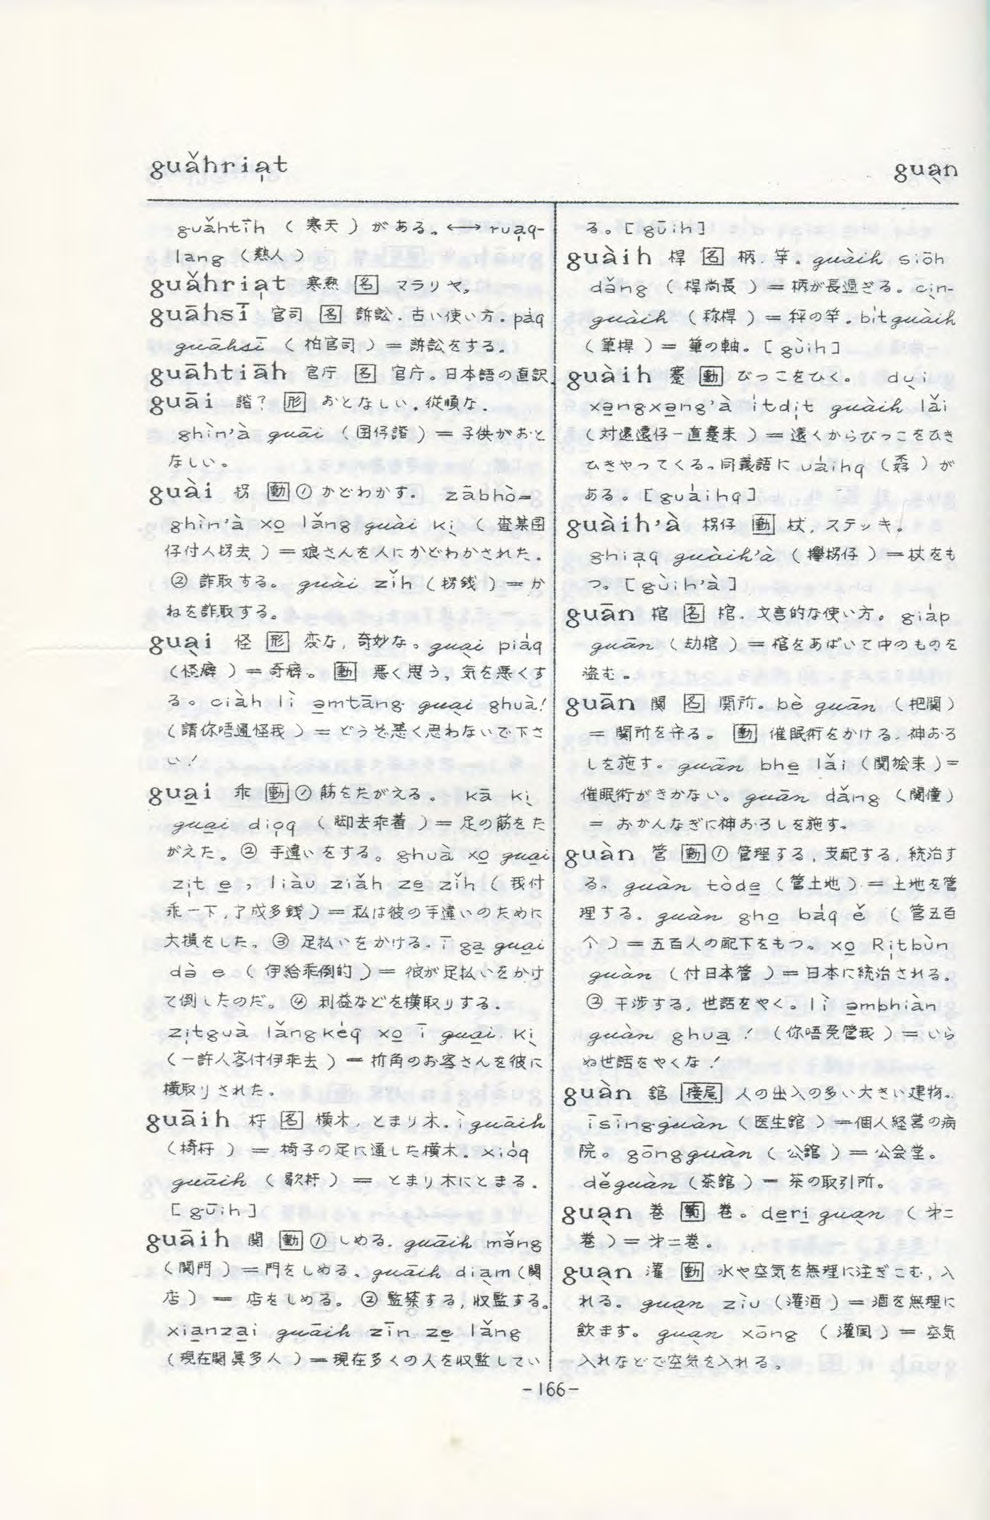 guǎhria̍t
guạn
guǎhtīh （寒天）がある。←→ ruạq-
lang （熱人）
guǎhria̍t 寒熱 [名] マラリヤ。
guāhsī 官司 [名] 訴訟．古い使い方．páq
guāhsī （拍官司）＝訴訟をする。
guāhtiāh 官庁 [名] 官庁。日本語の直訳．
guāi 諧？ [形] おとなしい．従順な．
ghìn'à guāi （囝仔諧）＝子供がおと
なしい。
guài 拐 [動] ① かどわかす． zābhò＝
ghìn'à xo̲ lǎng guài ki̩ （査某囝
仔付人拐去）＝娘さんを人にかどわかされた．
② 詐取する。guài zǐh （拐銭）＝か
ねを詐取する。
guại 怪 [形] 変な，奇妙な。guại piáq
（怪癖）＝奇癖。 [動] 悪く思う，気を悪くす
る。ciàh lì ə̲mtāng guại ghuà!
（請你唔通怪我）＝どうぞ悪く思わないで下さ
い！
guai̲ 乖 [動] ① 筋をたがえる． Kā ki̩
guai̲ dio̩q （脚去乖着）＝足の筋をた
がえた。② 手違いをする。ghuà xo̲ guai̲
zi̍t e̲, liàu ziǎh ze̲ zǐh （我付
乖一下，了成多銭）＝私は彼の手違いのために
大損をした。③ 足払いをかける．ī ga̲ guai̲
dà e （伊給乖倒的）＝彼が足払いをかけ
て倒したのだ。④ 利益などを横取りする．
zi̍tguà lǎngkéq xo̲ ī guai̲ Ki̩
（一許人客付伊乖去）＝折角のお客さんを彼に
横取りされた．
guāih 杆 [名] 横木，とまり木．ì guāih
（椅杆）＝椅子の足に通した横木．xióq
guāih （歇杆）＝とまり木にとまる．
[gūih]
guāih 関 [動] ① しめる．guāih mǎng
（関門）＝門をしめる．guāih diạm（関
店）＝店をしめる。② 監禁する，収監する。
xia̲nza̲i guāih zīn ze̲ lǎng
（現在関真多人）＝現在多くの人を収監してい
る。[gūih]
guàih 桿 [名] 柄．竿．guàih siōh
dǎng （桿尚長）＝柄が長過ぎる。ci̩n-
guàih （称桿）＝秤の竿．bítguàih
（筆桿）＝筆の軸。[gùih]
guàih 蹇 [動] びっこをひく。 dụi
xə̩ngxə̩ng'à i̍tdi̍t guàih lǎi
（対遠遠仔一直蹇来）＝遠くからびっこをひき
ひきやってくる．同義語に uàihq （）が
ある。[guàihq]
guàih'à 枴仔 [動] 杖，ステッキ．
ghia̍q guàih'à （攑枴仔）＝杖をも
つ。[gùih'à]
guān 棺 [名] 棺．文言的な使い方。giáp
guān （劫棺）＝棺をあばいて中のものを
盗む。
guān 関 [名] 関所。bè guān （把関）
＝関所を守る。 [動] 催眠術をかける．神おろ
しを施す．guān bhe̲ lǎi（関 来）＝
催眠術がきかない。guān dǎng （関僮）
＝おかんなぎに神おろしを施す．
guàn 管 [動] ① 管理する，支配する，統治す
る．guàn tòde̲ （管土地）＝土地を管
理する．guàn gho̲ báq ě （管五百
个）＝五百人の配下をもつ。xo̲ Ri̍tbùn
guàn （付日本管）＝日本に統治される。
② 干渉する，世話をやく。lì ə̲mbhiàn
guàn ghuà ! （你唔免管我）＝いら
ぬ世話をやくな！
guàn 館 [接尾] 人の出入の多い大きい建物．
īsīngguàn （医生館）＝個人経営の病
院。gōngguàn （公館）＝公会堂。
děguàn （茶館）＝茶の取引所。
guạn 巻 [量] 巻。de̲ri̲ guạn （才二
巻）＝才二巻。
guạn 灌 [動] 水や空気を無理に注ぎこむ，入
れる。guạn ziù （灌酒）＝酒を無理に
飲ます。guạn xōng （灌風）＝空気
入れなどで空気を入れる。
-166-